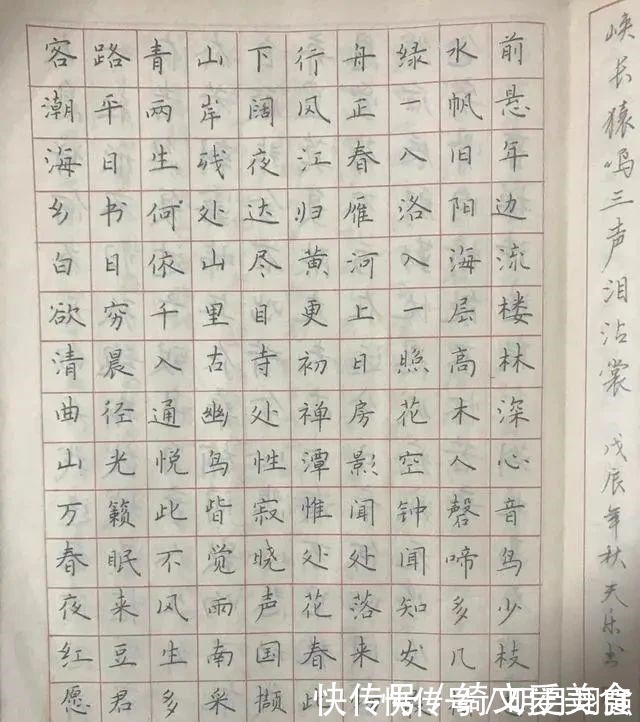 客路青山下行舟绿水前
潮平两岸阔风正一帆悬
海日生残夜江春入旧年
乡书何处达归雁洛阳边
白日依山尽黄河入海流
欲穷千里目更上一层楼
清晨入古寺初日照高林
曲径通幽处禅房花木深
山光悦鸟性潭影空人心
万籁此皆寂惟闻钟磬音
春眠不觉晓处处闻啼鸟
夜来风雨声花落知多少
红豆生南国春来发几枝
愿君多采撷此
峡长猿鸣三声泪沾裳 戊辰年秋天乐书
快传号